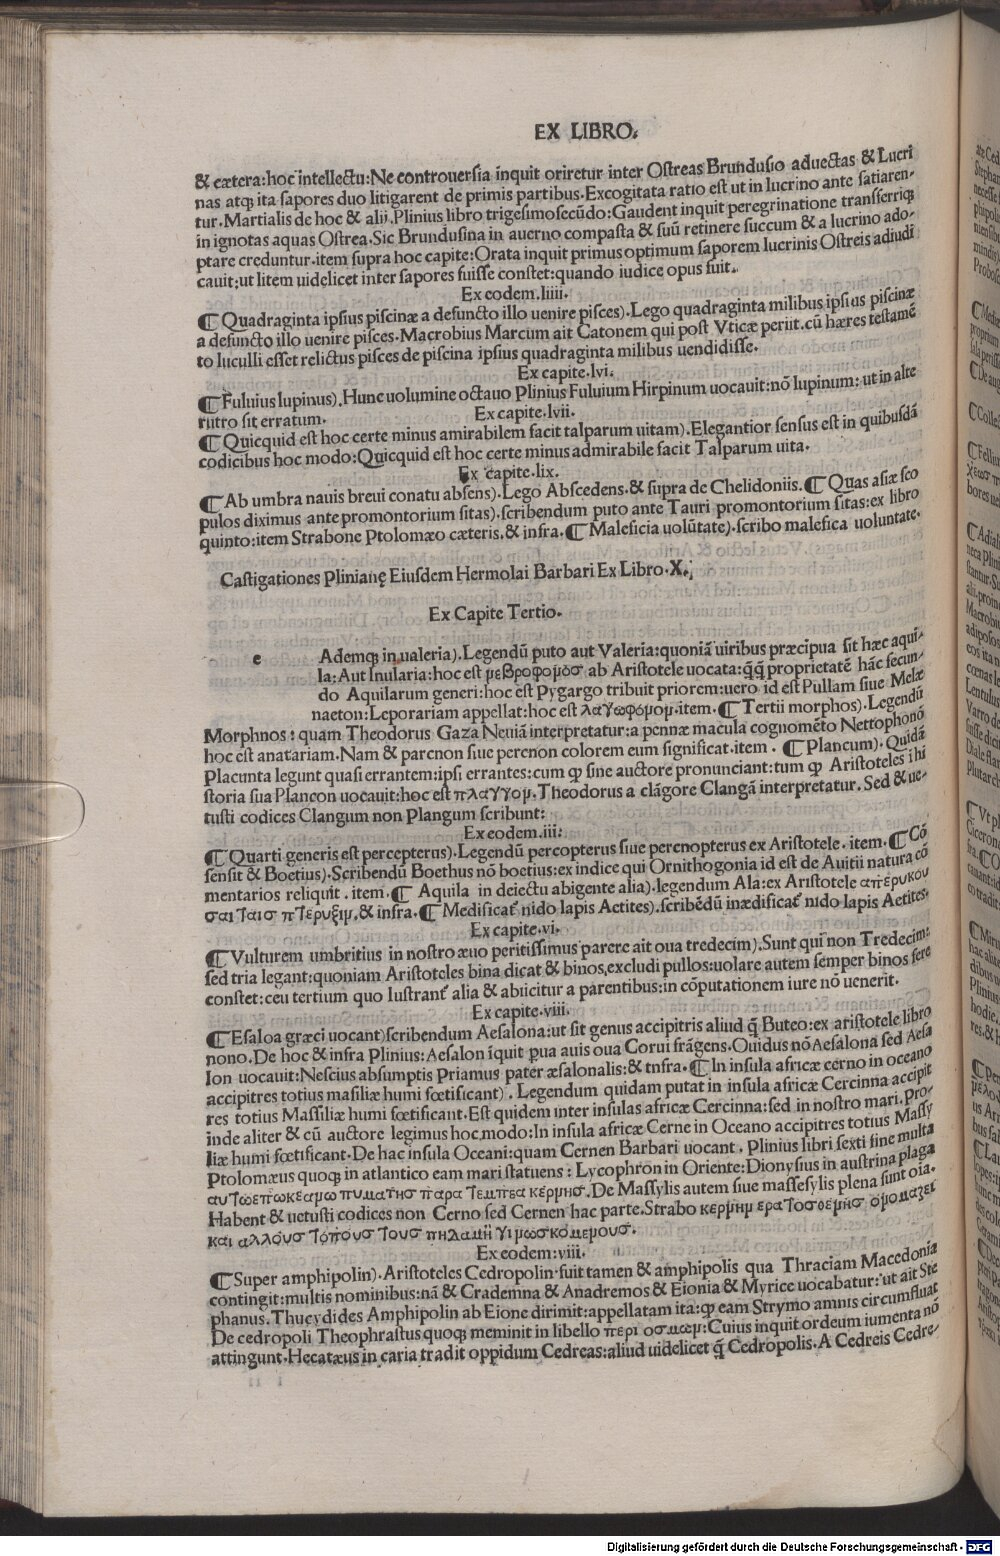 EX LIBRO.
& cætera:hoc intellectu:Ne controuersia inquit oriretur inter Ostreas Brundusio aduectas & Lucri
nas atq; ita sapores duo litigarent de primis partibus.Excogitata ratio est ut in lucrino ante satiaren-
tur.Martialis de hoc & alii.Plinius libro trigesimosecũdo:Gaudent inquit peregrinatione transferriq;
in ignotas aquas Ostrea.Sic Brundusina in auerno compasta & suũ retinere succum & a lucrino ado-
ptare creduntur.item supra hoc capite:Orata inquit primus optimum saporem lucrinis Ostreis adiudi
cauit:ut litem uidelicet inter sapores fuisse constet:quando iudice opus fuit.
Ex eodem.liiii.
¶ Quadraginta ipsius piscinæ a defuncto illo uenire pisces).Lego quadraginta milibus ipsius piscinæ
a defuncto illo uenire pisces.Macrobius Marcum ait Catonem qui post Vticæ periit.cũ hæres testamẽ
to luculli esset relictus pisces de piscina ipsius quadraginta milibus uendidisse.
Ex capite.lvi.
¶ Fuluius lupinus).Hunc uolumine octauo Plinius Fuluium Hirpinum uocauit:nõ lupinum: ut in alte
rutro sit erratum. Ex capite.lvii.
¶ Quicquid est hoc certe minus amirabilem facit talparum uitam).Elegantior sensus est in quibusdã
codicibus hoc modo:Quicquid est hoc certe minus admirabile facit Talparum uita.
Ex capite.lix.
¶ Ab umbra nauis breui conatu absens).Lego Abscedens.& supra de Chelidoniis. ¶ Quas asiæ sco
pulos diximus ante promontorium sitas).scribendum puto ante Tauri promontorium sitas:ex libro
quinto:item Strabone Ptolomæo cæteris.& infra. ¶ Maleficia uolũtate).scribo malefica uoluntate.
Castigationes Plinianę Eiusdem Hermolai Barbari Ex Libro.X.
Ex Capite Tertio.
e Ademq; in ualeria).Legendũ puto aut Valeria:quoniã uiribus præcipua sit hæc aqui-
la:Aut Inularia:hoc est μεβροφομόσ ab Aristotele uocata:q̃q̃ proprietatẽ hãc secun-
do Aquilarum generi:hoc est Pygargo tribuit priorem:uero id est Pullam siue Melæ
naeton:Leporariam appellat:hoc est λαγωφόμομ.item. ¶ Tertii morphos).Legendũ
Morphnos: quam Theodorus Gaza Neuiã interpretatur:a pennæ macula cognomẽto Nettophonõ
hoc est anatariam.Nam & parcnon siue percnon colorem eum significat.item. ¶ Plancum).Quidã
Placunta legunt quasi errantem:ipsi errantes:cum ꝙ sine auctore pronunciant:tum ꝙ Aristoteles i hi
storia sua Plancon uocauit:hoc est πλαγγομ.Theodorus a clãgore Clangã interpretatur.Sed & ue-
tusti codices Clangum non Plangum scribunt:
Ex eodem.iii:
¶ Quarti generis est percepterus).Legendũ percopterus siue percnopterus ex Aristotele.item. ¶ Cõ
sensit & Boetius).Scribendũ Boethus nõ boetius:ex indice qui Ornithogonia id est de Auitii natura cõ
mentarios reliquit.item. ¶ Aquila in deiectu abigente alia).legendum Ala:ex Aristotele απέρυκου
σαι ταισ πτέρυξιμ.& infra. ¶ Medificat́ nido lapis Actites).scribẽdũ inædificat́ nido lapis Aetites.
Ex capite.vi.
¶ Vulturem umbritius in nostro æuo peritissimus parere ait oua tredecim).Sunt qui non Tredecim:
sed tria legant:quoniam Aristoteles bina dicat & binos,excludi pullos:uolare autem semper binos fere
constet:ceu tertium quo lustrant́ alia & abiicitur a parentibus:in cõputationem iure nõ uenerit.
Ex capite.viii.
¶ Esaloa græci uocant)scribendum Aesalona:ut sit genus accipitris aliud q̃ Buteo:ex aristotele libro
nono.De hoc & infra Plinius:Aesalon ĩquit pua auis oua Corui frãgens.Ouidus nõ Aesalona sed Aesa
lon uocauit:Nescius absumptis Priamus pater æsalonalis:& tnfra. ¶ In insula africæ cerno in oceano
accipitres totius masiliæ humi fœtificant). Legendum quidam putat in insula africæ Cercinna accipit
res totius Massiliæ humi fœtificant.Est quidem inter insulas africæ Cercinna:sed in nostro mari.Pro-
inde aliter & cũ auctore legimus hoc,modo:In insula africæ Cerne in Oceano accipitres totius Massy
liæ humi fœtificant.De hac insula Oceani:quam Cernen Barbari uocant. Plinius libri sexti fine multa
Ptolomæus quoq; in atlantico eam mari statuens: Lycophron in Oriente:Dionysius in austrina plaga
αυτωεπωκεαμω πυματησ παρα τεμπεα κέρμησ.De Massylis autem siue massesylis plena sunt oia.
Habent & uetusti codices non Cerno sed Cernen hac parte.Strabo κερμημ ερατοσθέμησ ομομαζει
και αλλουσ τοπουσ τους πηλαμη γιμωσκομεμους.
Ex eodem:viii.
¶ Super amphipolin).Aristoteles Cedropolin.fuit tamen & amphipolis qua Thraciam Macedonia
contingit:multis nominibus:nã & Crademna & Anadremos & Eionia & Myrice uocabatur:ut ait Ste
phanus.Thucydides Amphipolin ab Eione dirimit:appellatam ita:ꝙ eam Strymo amnis circumfluat
De cedropoli Theophrastus quoq; meminit in libello περι οσμωμ:Cuius inquit ordeum iumenta nõ
attingunt.Hecatæus in caria tradit oppidum Cedreas:aliud uidelicet q̃ Cedropolis.A Cedreis Cedre-
Digitalisierung gefördert durch die Deutsche Forschungsgemeinschaft - DFG